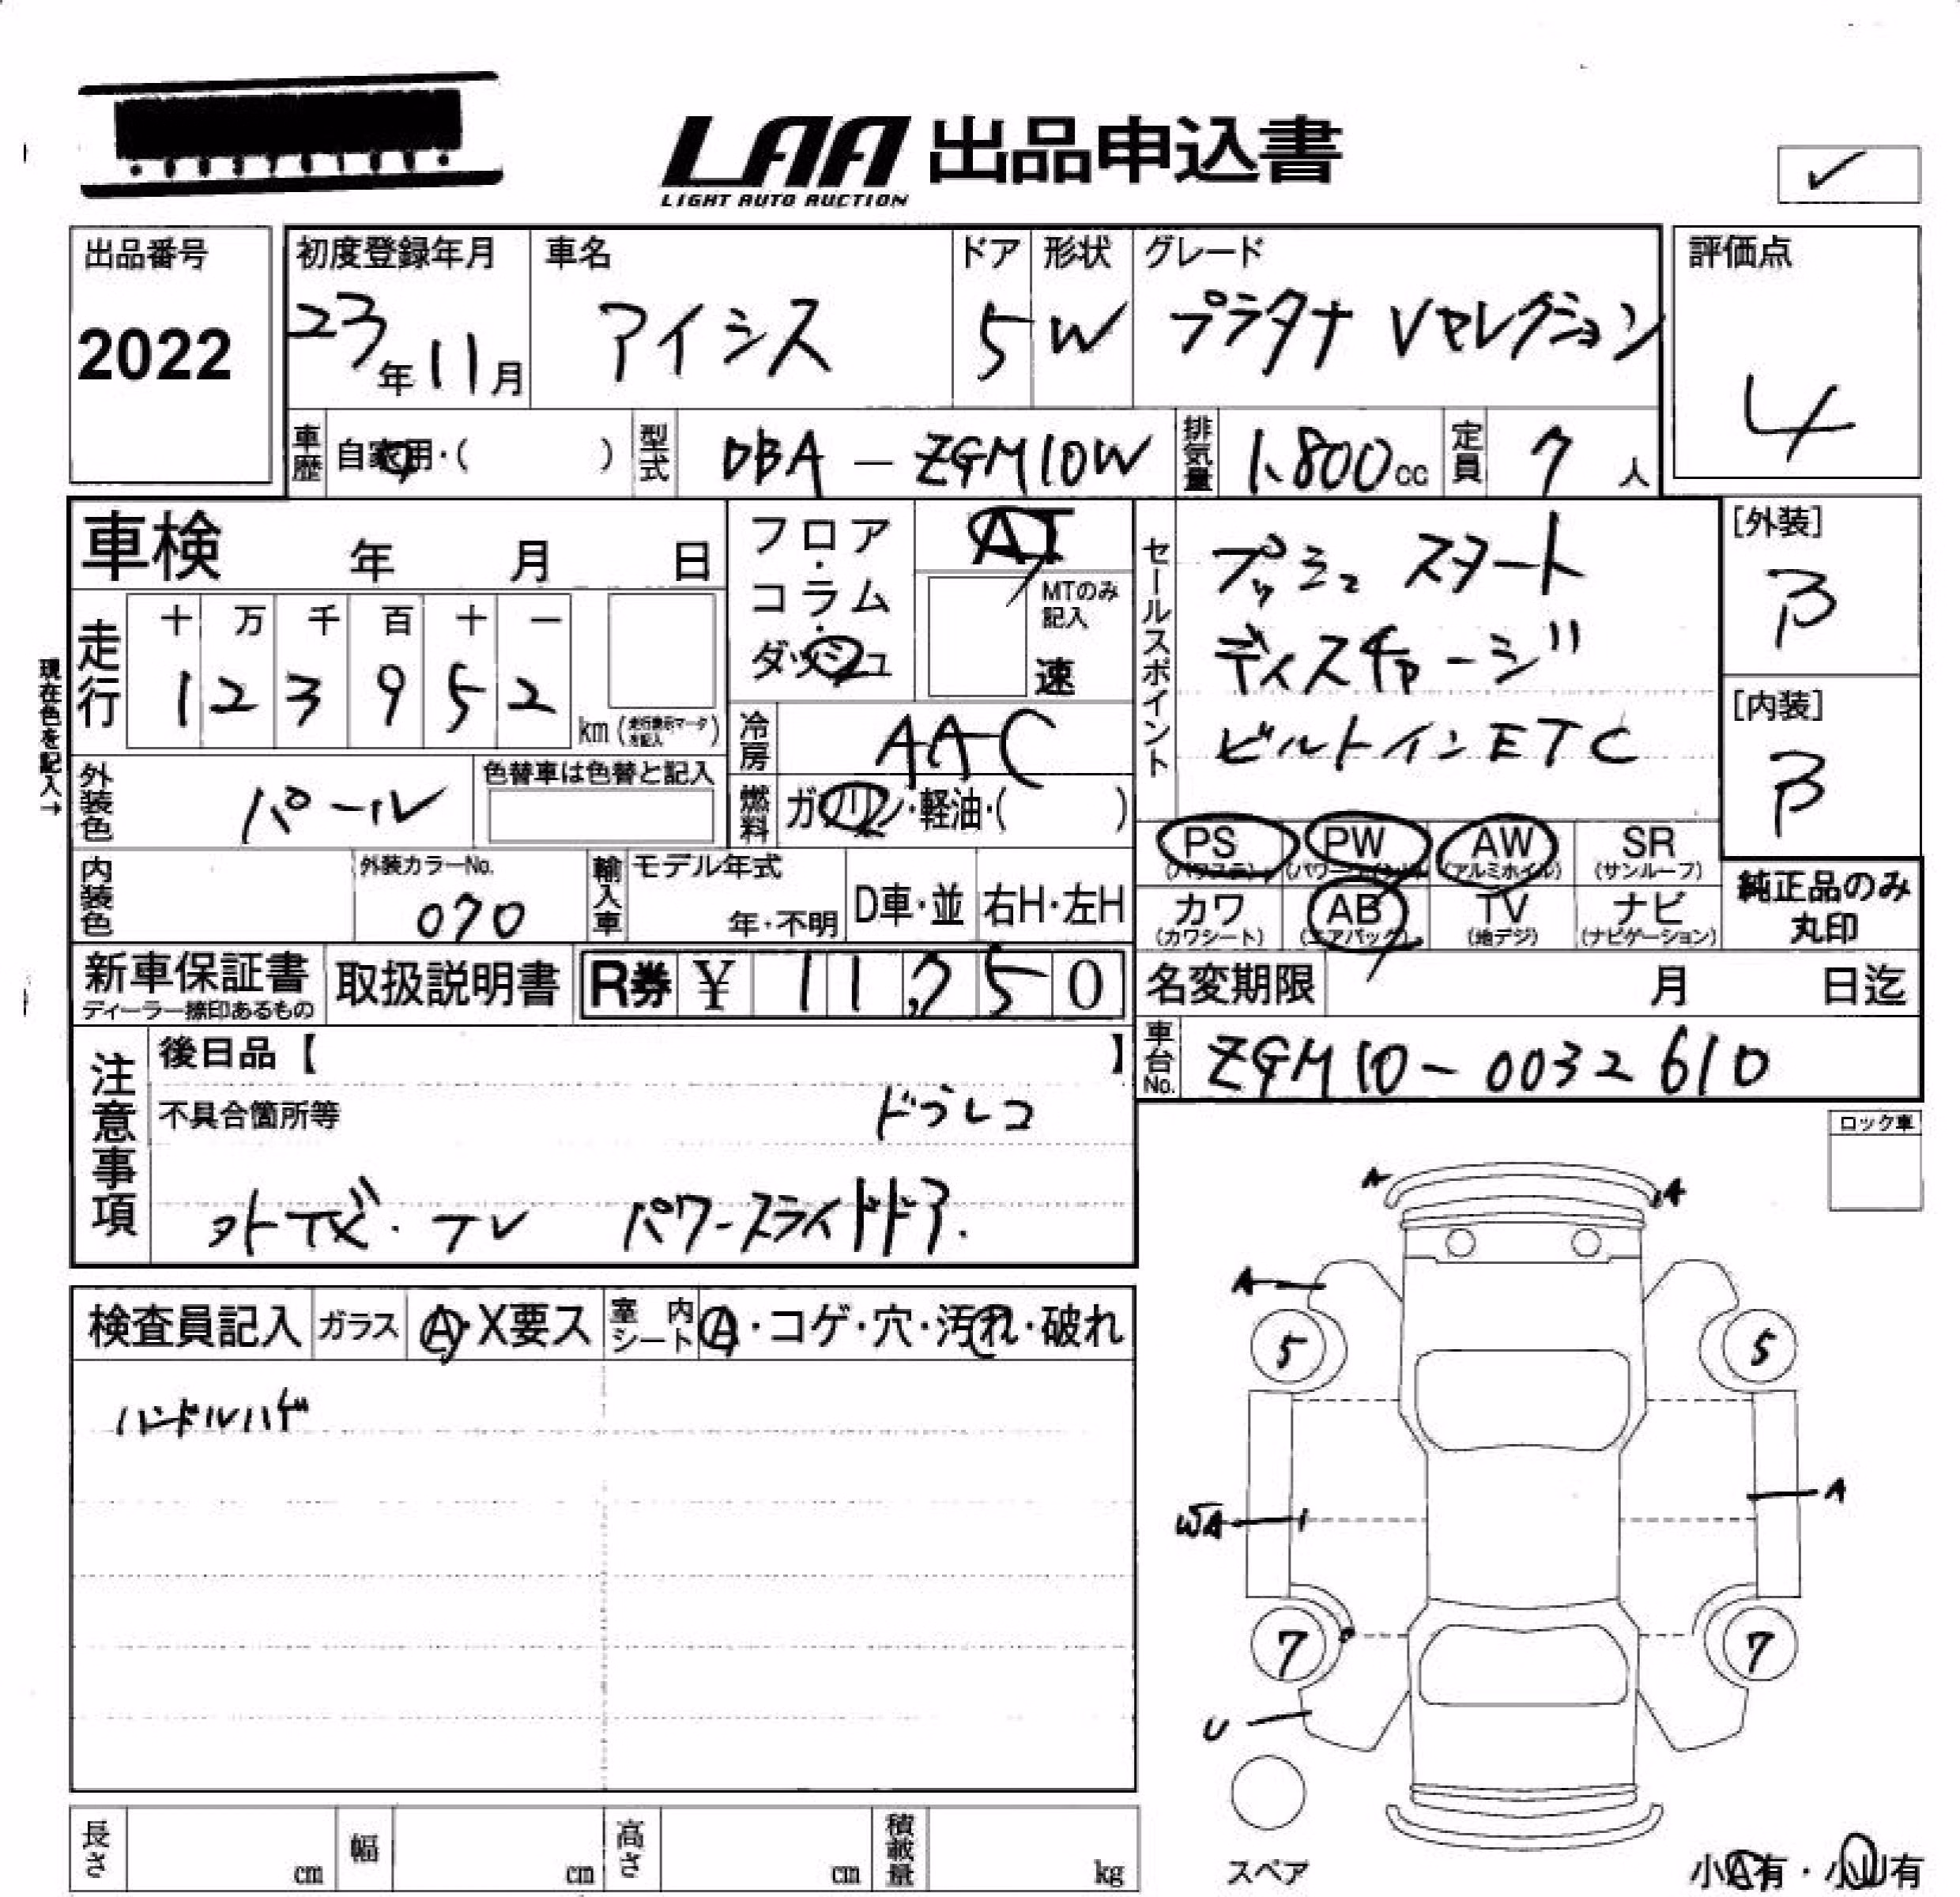 LAA 出品申込書
LIGHT AUTO AUCTION
✓
出品番号 初度登録年月 車名 ドア 形状 グレード 評価点
2022 23年11月 アイシス 5 W プラタナ Vセレクション 4
車歴 自家用・( ) 型式 DBA - ZGM10W 排気量 1,800cc 定員 7人
車検 年 月 日
フロア・コラム・ダッシュ
AT
MTのみ記入
速
セールスポイント
プッシュ スタート
ディスチャージ
ビルトインETC
[外装]
B
[内装]
B
現在色を記入→
走行 十 万 千 百 十 一
1 2 3 9 5 2 km (走行表示マータを記入)
冷房 AAC
外装色 パール 色替車は色替と記入
燃料 ガソリン・軽油・( )
PS (パワステ) PW (パワーウインドウ) AW (アルミホイル) SR (サンルーフ)
カワ (カワシート) AB (エアバック) TV (地デジ) ナビ (ナビゲーション)
純正品のみ
丸印
内装色 外装カラーNo. 070 輸入車 モデル年式 年・不明 D車・並 右H・左H
新車保証書 取扱説明書 R券 ¥ 11,750
ディーラー捺印あるもの
名変期限 月 日迄
車台No. ZGM10-0032610
注意事項
後日品【 】
不具合箇所等 ドラレコ
外ナビ・TV パワースライドドア.
ロック車
検査員記入 ガラス A・X要ス 室内シート A・コゲ・穴・汚れ・破れ
ハンドルハゲ
A A
A
5 5
A
WA
7 7
U
スペア
小A有・小U有
長さ cm 幅 cm 高さ cm 積載量 kg